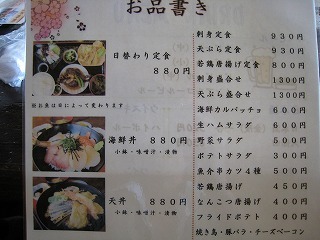 お品書き
日替わり定食
880円
※お魚は日によって変わります
海鮮丼 880円
小鉢・味噌汁・漬物
天丼 880円
小鉢・味噌汁・漬物
刺身定食 930円
天ぷら定食 930円
若鶏唐揚げ定食 800円
刺身盛合せ 1300円
天ぷら盛合せ 1300円
海鮮カルパッチョ 600円
生ハムサラダ 600円
野菜サラダ 500円
ポテトサラダ 300円
魚介串カツ4種 500円
若鶏唐揚げ 450円
なんこつ唐揚げ 400円
フライドポテト 400円
焼き鳥・豚バラ・チーズベーコン